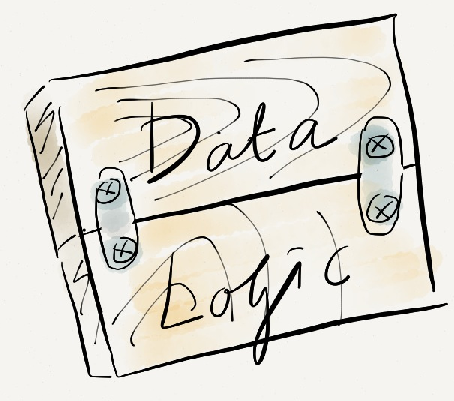 Data
Logic